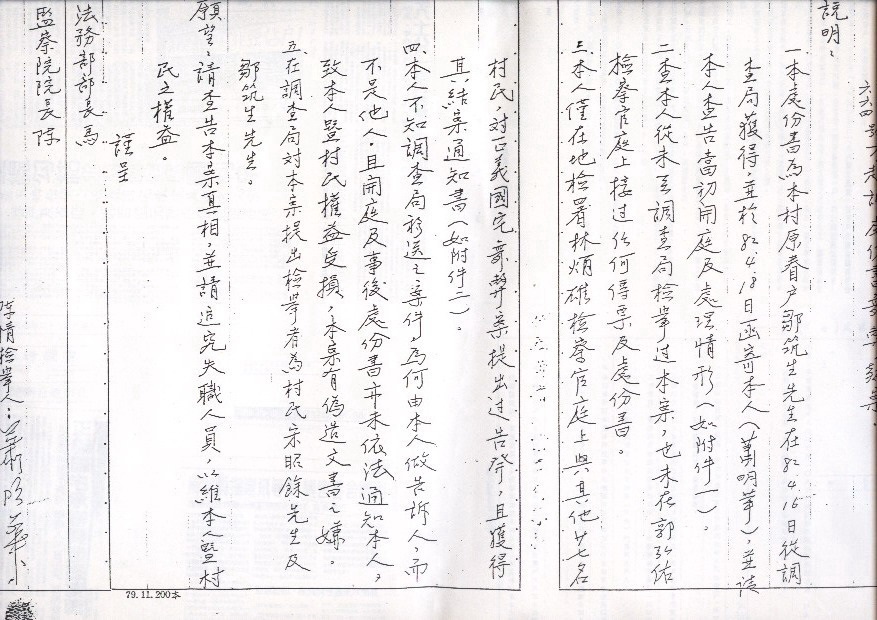 說明：
一、本處份書為本村原眷户鄒筑生先生在82.4.16日從調
查局獲得，並於82.4.18日函寄本人（蕭明華），並請
本人查告當初開庭及處理情形（如附件一）。
二、查本人從未至調查局檢舉過本案，也未在郭弘佑
檢察官庭上接过任何傳票及處份書。
三、本人僅在地檢署林炳雄檢察官庭上與其他廿七名
村民，对正義國宅弊案提出过告發，且獲得
其結案通知書（如附件二）。
四、本人不知調查局移送之案件，為何由本人做告訴人，而
不是他人，且開庭及事後處份書亦未依法通知本人，
致本人暨村民權益受損，本案有偽造文書之嫌。
五、在調查局对本案提出檢舉者為村民宗昭錄先生及
鄒筑生先生。
願望：請查告本案真相，並請追究失職人員，以維本人暨村
民之權益。
謹呈
法務部部長馬
監察院院長陳
陳情檢舉人：蕭明華
79.11.200本